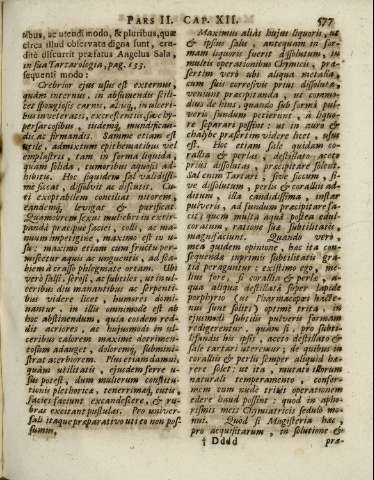 PARS II. CAP. XII. 577
tibus, ac utendi modo, & pluribus, quæ
circa illud observata digna sunt, eru-
ditè discurrit præfatus Angelus Sala,
in sua Tartarologia, pag. 153.
sequenti modo:
Crebrior ejus usus est externus
quàm internus, in absumendis scili-
cet spongiosis carnis, alisq́; in ulceri-
bus inveteratis, excrescentiis, sive hy-
persarcosibus, iisdemq́; mundifican-
dis ac firmandis. Summè etiam est
utile, admixtum epithematibus vel
emplastris, tam in forma liquida,
quàm solida, tumoribus aquosis ad-
hibitis. Hoc siquidem sal validissi-
mè siccat, dissolvit ac discutit. Cu-
ti exoptabilem conciliat nitorem,
eandemq́; levigat & purificat.
Quamobrem sexui muliebri in extir-
pandâ præcipuè faciei, colli, ac ma-
nuum impetigine, maximo est in u-
su: maximo etiam cum fructu per-
miscetur aquis ac unguentis, ad sca-
biem à crasso phlegmate ortam. Ubi
verò salsi, serosi, ac subtiles, ut in ul-
ceribus diu manantibus ac serpenti-
bus videre licet, humores domi-
nantur, in illis omnimodò est ab
hoc abstinendum, quia eosdem red-
dit acriores, ac hujusmodi in ul-
ceribus calorem maximè detrimen-
tosum adauget, doloremq́; submini-
strat acerbiorem. Plus etiam damni,
quàm utilitatis, ejusdem ferre u-
sus potest, dum mulierum constitu-
tionis plethorica, tenerrimæq́; cutis,
facies faciunt excandescere, & ru-
bras excitant pustulas. Pro univer-
sali itaque præparativo uti eo non pos-
sumus,
Maximus aliàs hujus liquoris, ut
& ipsius salis, antequam in for-
mam liquoris fuerit dissolutum, in
multis operationibus Chymicis, præ-
sertim verò ubi aliqua metalla,
cum suis corrosivis priùs dissoluta,
veniunt præcipitanda, ut commo-
diùs de hinc, quando sub formâ pul-
veris fundum petierunt, à liquo-
re separari possint: ut in auro &
chalybe præsertim videre licet, usus
est. Hoc etiam sale quidam co-
rallia & perlas, destillato aceto
priùs dissolutas, præcipitare solent.
Sal enim Tartari, sive siccum, si-
ve dissolutum, perlis & coralliis ad-
ditum, illa candidissima, instar
pulveris, ad fundum præcipitare fa-
cit; quem multi aquâ posteà edul-
coratum, ratione suæ subtilitatis
magnifaciunt. Quando verò
mea quidem opinione, hæc ita con-
sequenda inprimis subtilitatis gra-
tiâ peraguntur: existimo ego, me-
lius fore, si corallia & perlæ, a-
qua aliquâ destillatâ super lapide
porphyrio (ut Pharmacopæi hacte-
nus sunt soliti) optimè trita, in
ejusmodi subtilis pulveris formam
redigerentur, quàm si, pro subti-
liandis his ipsis, aceto destillato &
sale tartari uterentur; de quibus in
coralliis & perlis semper aliquid hæ-
rere solet; ut ita, mutato illorum
naturali temperamento, confor-
mem tum nudæ triti operationem
edere haud possint: quod in apho-
rismis meis Chymiatricis sedulò mo-
nui. Quod si Magisteria hæc,
pro acquisitorum, in solutione &
† Dddd præ-